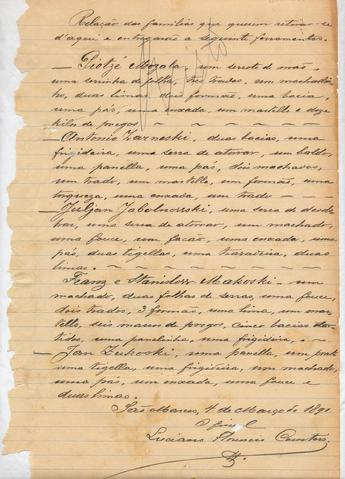 Relação das familias que querem retirar-se
d'aqui e entregarão a seguinte ferramentas.
um serrote de mão,
uma serrinha de folha, tres trados, um machadi-
nho, duas limas, dois formão, uma bacia,
uma pás, uma enxada, um martello e doze
kilos de pregos
Antonio Zarneski, duas bacias, uma
frigideira, uma serra de atorar, um balde,
uma panella, uma pá, dois machados,
um trado, um martello, um formão, uma
torqueza, uma enxada, um trado
Juljan Jabolnosski, uma serra de desdo-
brar, uma serra de atorar, um machado,
uma fouce, um facão, uma enxada, uma
pás, duas tigellas, uma duas
limas.
Franz e Stanislaw Makoski - um
machado, duas folhas de serras, uma fouce,
dois trados, 1 formão, uma lima, um mar-
tello, seis de pregos, cinco bacias
uma panelinha, uma frigideira.
Jan Zukoski, uma panella, um prato
uma tigella, uma frigideira, um machado,
uma pás, um enxada, uma fouce e
duas limas.
São Marcos, 4 de Março de 1891
O fiscal
Luciano